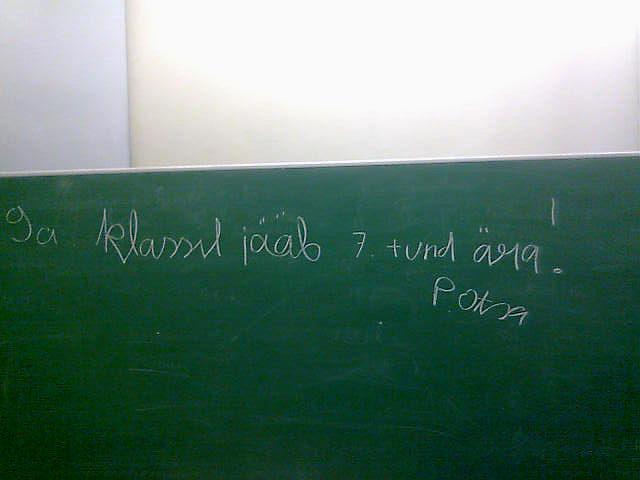 9a klassil jääb 7. tund ära!
P. Otsa